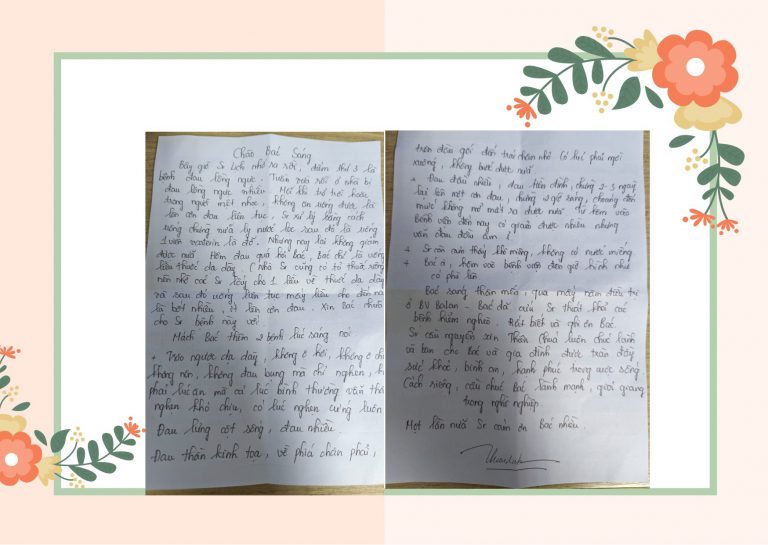 Chào Bác Sáng
Bây giờ Sr lịch nhớ ra rồi, điểm thứ 3 là
bệnh đau lồng ngực. Tuần vừa rồi ở nhà bị
đau lồng ngực nhiều. Mỗi khi trở trời hoặc
trong người mệt nhọc, không ăn uống được là
lên cơn đau liên tục, Sr xử lý bằng cách
uống chừng nửa ly nước lọc sau đó là uống
1 viên là đỡ. Nhưng nay lại không giảm
được nữa. Hôm đau quá hỏi bác, Bác chỉ là uống
liều thuốc dạ dày. (Nhà Sr cũng có tủ thuốc sống
nên nhờ các Sr lấy cho 1 liều về thuốc dạ dày
và sau đó uống liên tục mấy liều cho đến nay
là bớt nhiều, ít lên cơn đau. Xin Bác chữa
cho Sr bệnh này với!
Mách Bác thêm 2 bệnh lúc sáng nói
+ Trào ngược dạ dày, không ợ hơi, không ợ chua
không nôn, không đau bụng mà chỉ nghẹn, k
phải lúc ăn mà cả lúc bình thường vẫn thấy
nghẹn khó chịu, có lúc nghẹn cứng luôn
Đau lưng cột sống, đau nhiều.
Đau thần kinh tọa, về phía chân phải,
trên đầu gối đến trái chân nhỏ. Có lúc phải ngồi
xuống, không bước được nữa.
+ Đau đầu nhiều, đau tiền đình, chừng 2-3 ngày
lại lên một cơn đau, chừng 2 giờ sáng, choáng đến
mức không mở mắt ra được nữa. Từ hôm vào
bệnh viện đến nay có giảm được nhiều nhưng
vẫn đau đầu âm ỉ.
+ Sr còn thấy khô miệng, không có nước miếng
+ Bác ạ, hôm vào bệnh viện đến giờ hình như
có phù lên.
Bác Sáng thân mến, qua mấy năm điều trị
ở BV Bolsan - Bác đã cứu Sr thoát khỏi các
bệnh hiểm nghèo. Rất biết và ghi ơn Bác.
Sr cầu nguyện xin Thiên Chúa luôn chúc lành
và ban cho Bác và gia đình được tràn đầy
sức khoẻ, bình an, hạnh phúc trong cuộc sống
Cách riêng, cầu chúc Bác lành mạnh, giỏi giang
trong nghề nghiệp.
Một lần nữa Sr cảm ơn Bác nhiều.